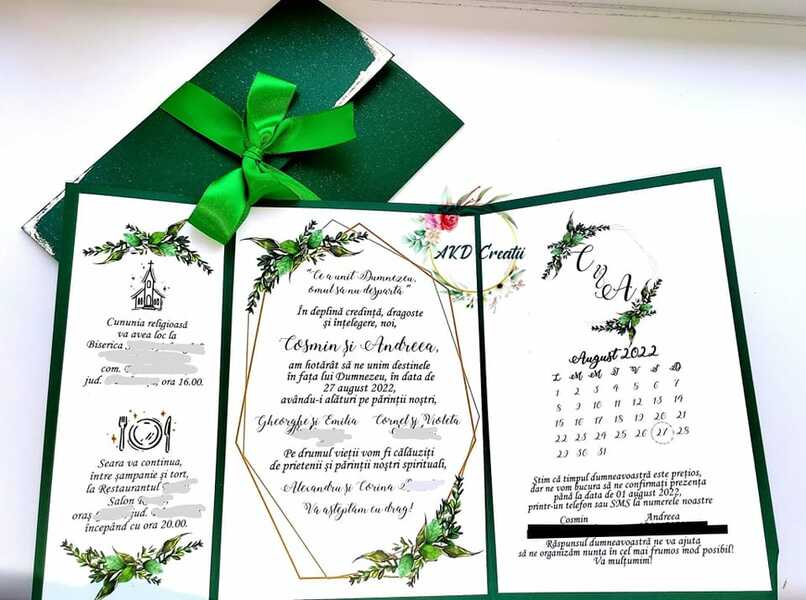 Cununia religioasă
va avea loc la
Biserica
com.
jud. , ora 16.00.
Seara va continua,
între șampanie și tort,
la Restaurantul
Salon
oraș jud.
începând cu ora 20.00.
"Ce a unit Dumnezeu,
omul să nu despartă"
În deplină credință, dragoste
și înțelegere, noi,
Cosmin și Andreea,
am hotărât să ne unim destinele
în fața lui Dumnezeu, în data de
27 august 2022,
avându-i alături pe părinții noștri,
Gheorghe și Emilia Cornel și Violeta
Pe drumul vieții vom fi călăuziți
de prietenii și părinții noștri spirituali,
Alexandru și Corina
Vă așteptăm cu drag!
AKD Creatii
C și A
August 2022
L M M J V S D
1 2 3 4 5 6 7
8 9 10 11 12 13 14
15 16 17 18 19 20 21
22 23 24 25 26 27 28
29 30 31
Știm că timpul dumneavoastră este prețios,
dar ne vom bucura să ne confirmați prezența
până la data de 01 august 2022,
printr-un telefon sau SMS la numerele noastre
Cosmin Andreea
Răspunsul dumneavoastră ne va ajuta
să ne organizăm nunta în cel mai frumos mod posibil!
Vă mulțumim!